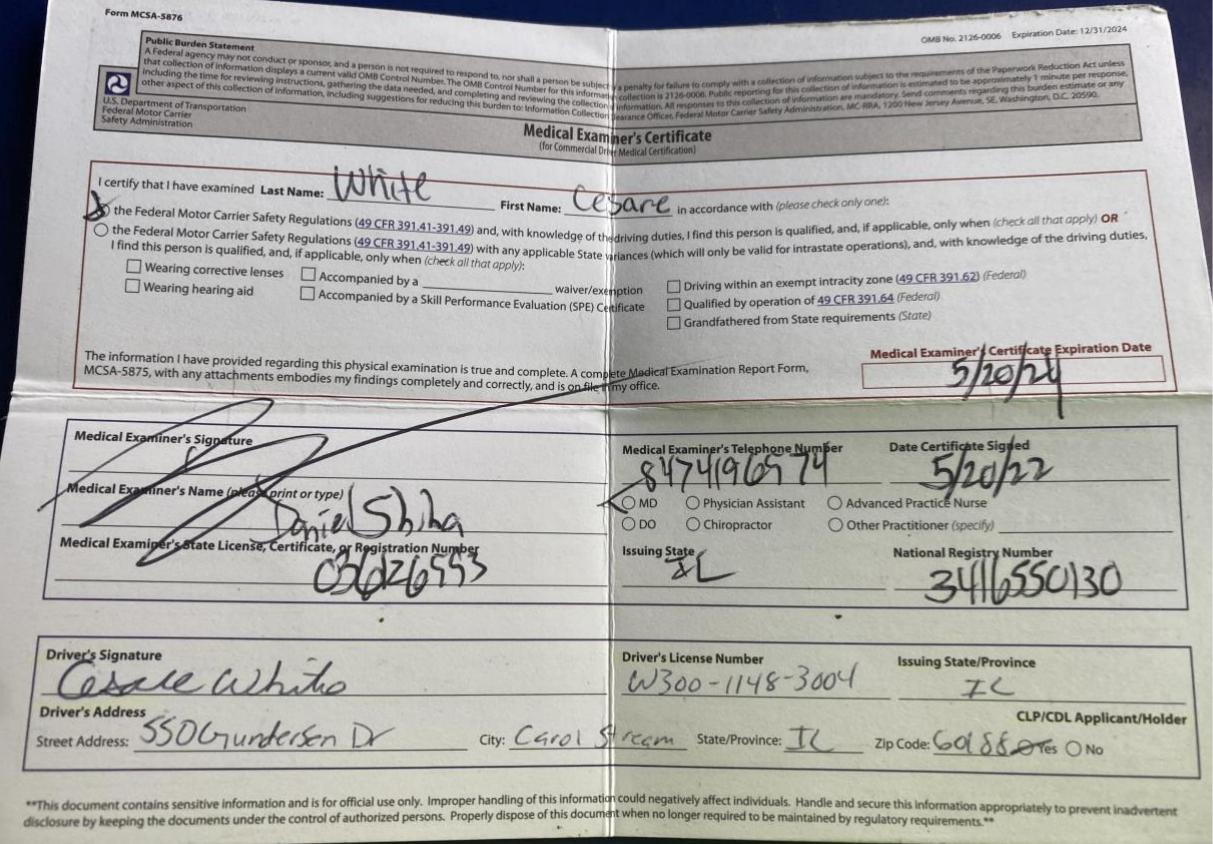 Form MCSA-5876
OMB No. 2126-0006 Expiration Date: 12/31/2024
Public Burden Statement
A Federal agency may not conduct or sponsor, and a person is not required to respond to, nor shall a person be subject a penalty for failure to comply with a collection of information subject to the requirements of the Paperwork Reduction Act unless
that collection of information displays a current valid OMB Control Number. The OMB Control Number for this information collection is 2126-0006. Public reporting for this collection of information is estimated to be approximately 1 minute per response,
including the time for reviewing instructions, gathering the data needed, and completing and reviewing the collection information. All responses to this collection of information are mandatory. Send comments regarding this burden estimate or any
other aspect of this collection of information, including suggestions for reducing this burden to: Information Collection Clearance Officer, Federal Motor Carrier Safety Administration, MC-RRA, 1200 New Jersey Avenue, SE, Washington, D.C. 20590.
U.S. Department of Transportation
Federal Motor Carrier
Safety Administration
Medical Examiner's Certificate
(for Commercial Driver Medical Certification)
I certify that I have examined Last Name: White First Name: Cesare in accordance with (please check only one):
the Federal Motor Carrier Safety Regulations (49 CFR 391.41-391.49) and, with knowledge of the driving duties, I find this person is qualified, and, if applicable, only when (check all that apply) OR
the Federal Motor Carrier Safety Regulations (49 CFR 391.41-391.49) with any applicable State variances (which will only be valid for intrastate operations), and, with knowledge of the driving duties,
I find this person is qualified, and, if applicable, only when (check all that apply):
Wearing corrective lenses Accompanied by a waiver/exemption Driving within an exempt intracity zone (49 CFR 391.62) (Federal)
Wearing hearing aid Accompanied by a Skill Performance Evaluation (SPE) Certificate Qualified by operation of 49 CFR 391.64 (Federal)
Grandfathered from State requirements (State)
The information I have provided regarding this physical examination is true and complete. A complete Medical Examination Report Form,
MCSA-5875, with any attachments embodies my findings completely and correctly, and is on file in my office.
Medical Examiner's Certificate Expiration Date
5/20/24
Medical Examiner's Signature
Medical Examiner's Telephone Number Date Certificate Signed
8474196574 5/20/22
Medical Examiner's Name (please print or type)
Daniel
MD Physician Assistant Advanced Practice Nurse
DO Chiropractor Other Practitioner (specify)
Medical Examiner's State License, Certificate, or Registration Number
Issuing State National Registry Number
IL 3416550130
Driver's Signature
Cesare White
Driver's License Number Issuing State/Province
W300-1148-3004 IL
Driver's Address
CLP/CDL Applicant/Holder
Street Address: 550 Gundersen Dr City: Carol Stream State/Province: IL Zip Code: 60188 Yes No
**This document contains sensitive information and is for official use only. Improper handling of this information could negatively affect individuals. Handle and secure this information appropriately to prevent inadvertent
disclosure by keeping the documents under the control of authorized persons. Properly dispose of this document when no longer required to be maintained by regulatory requirements.**